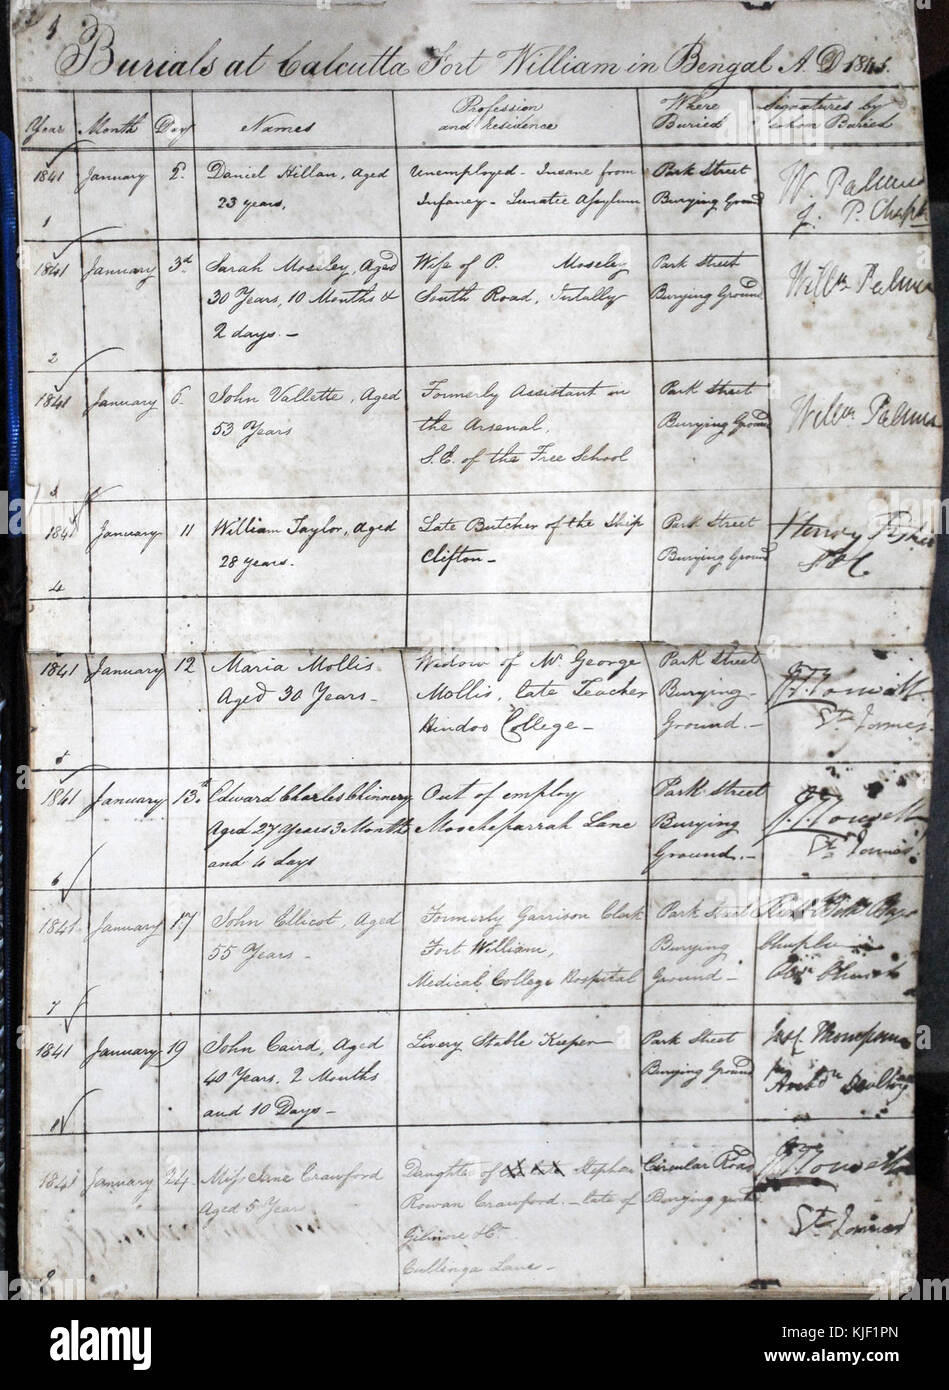 Burials at Calcutta Fort William in Bengal A.D 1841.
Year Month Day Names Profession and Residence Where Buried Signatures by whom Buried
1841 January 2. Daniel Hillan, Aged Unemployed - Insane from Park Street W. Palmer
23 years. Infancy - Lunatic Asylum Burying Ground P. Chapln
1
1841 January 3rd Sarah Moseley, Aged Wife of P. Moseley Park Street Willm Palmer
30 Years, 10 Months & South Road, Intally Burying Ground
2 days. -
2
1841 January 6 John Vallette, Aged Formerly Assistant in Park Street Willm Palmer
53 Years the Arsenal, Burying Ground
S.E. of the Free School
3
1841 January 11 William Taylor, Aged Late Butcher of the Ship Park Street Henry Fisher
28 years. Clifton - Burying Ground
4
1841 January 12 Maria Mollis Widow of Mr George Park Street
Aged 30 Years - Mollis, late Teacher Burying
Hindoo College - Ground. - St James.
5
1841 January 13th Edward Charles Chinnery Out of employ Park Street
Aged 27 Years 3 Months Moocheparrah Lane Burying
and 4 days Ground. - St James.
6
1841 January 17 John Ellicot, Aged Formerly Garrison Clerk Park Street
55 Years - Fort William, Burying Chapln
Medical College Hospital Ground - Church
7
1841 January 19 John Caird, Aged Livery Stable Keeper Park Street
40 Years, 2 Months Burying Ground
and 10 Days -
8
1841 January 24 Miss Jane Crawford Daughter of Stephen Circular Road
Aged 5 Year Rowan Crawford. - late of Burying ground
Gilmore & Co. St James
Cullenga Lane -
9
alamy
Image ID: KJF1PN
www.alamy.com